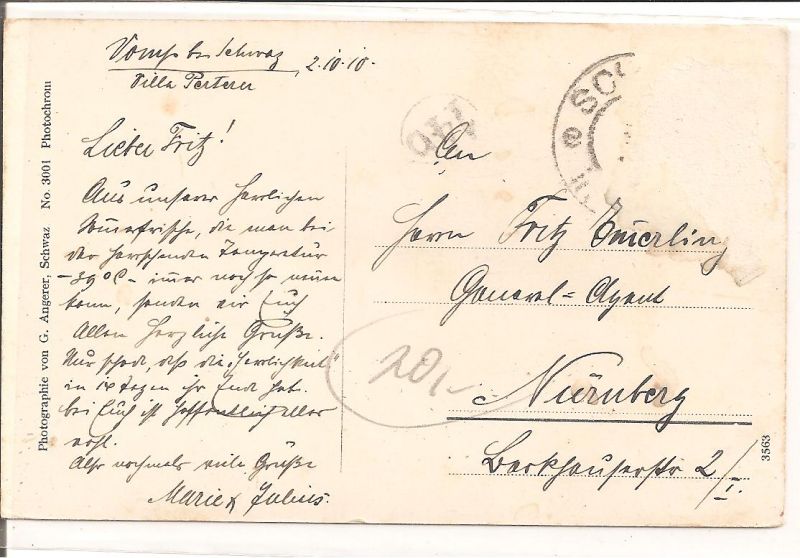 Vomp bei Schwaz
2.10.10.
Villa Perterer
Lieber Fritz!
Aus unserer herrlichen
die man bei
der herrschenden Temperatur
immer noch so
kann, senden wir Euch
Allen herzliche Grüße.
Nur schade, daß die "Herrlichkeit"
in Tagen ihr Ende hat.
bei Euch ist hoffentlich alles
wohl.
Also nochmals viele Grüße
Marie & Julius.
Photographie von G. Angerer, Schwaz No. 3001 Photochrom
SC
An
Herrn Fritz
General-Agent
Nürnberg
2/I.
20,-
3563